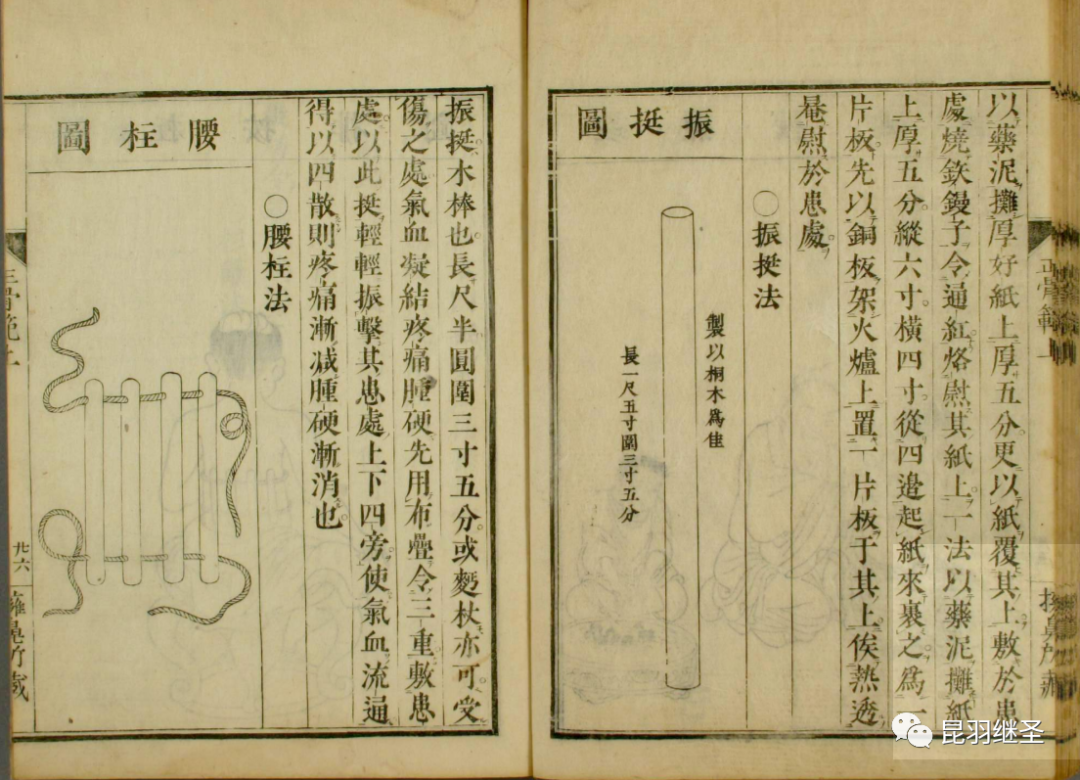 以藥泥攤厚好紙上厚五分更以紙覆其上敷於患
處燒鉄鏝子令通紅烙慰其紙上一法以藥泥攤紙
上厚五分縱六寸橫四寸從四邉起紙來裹之為一
片板先以銅板架火爐上置一片板于其上俟熱透
罨慰於患處
○振挺法
振挺圖
製以桐木為佳
長一尺五寸圍三寸五分
振挺木棒也長尺半圓圍三寸五分或麪杖亦可受
傷之處氣血凝結疼痛腫硬先用布疊令三重敷患
處以此挺輕輕振擊其患處上下四旁使氣血流通
得以四散則疼痛漸减腫硬漸消也
○腰柱法
腰柱圖
正骨範
廿六
昆羽继圣